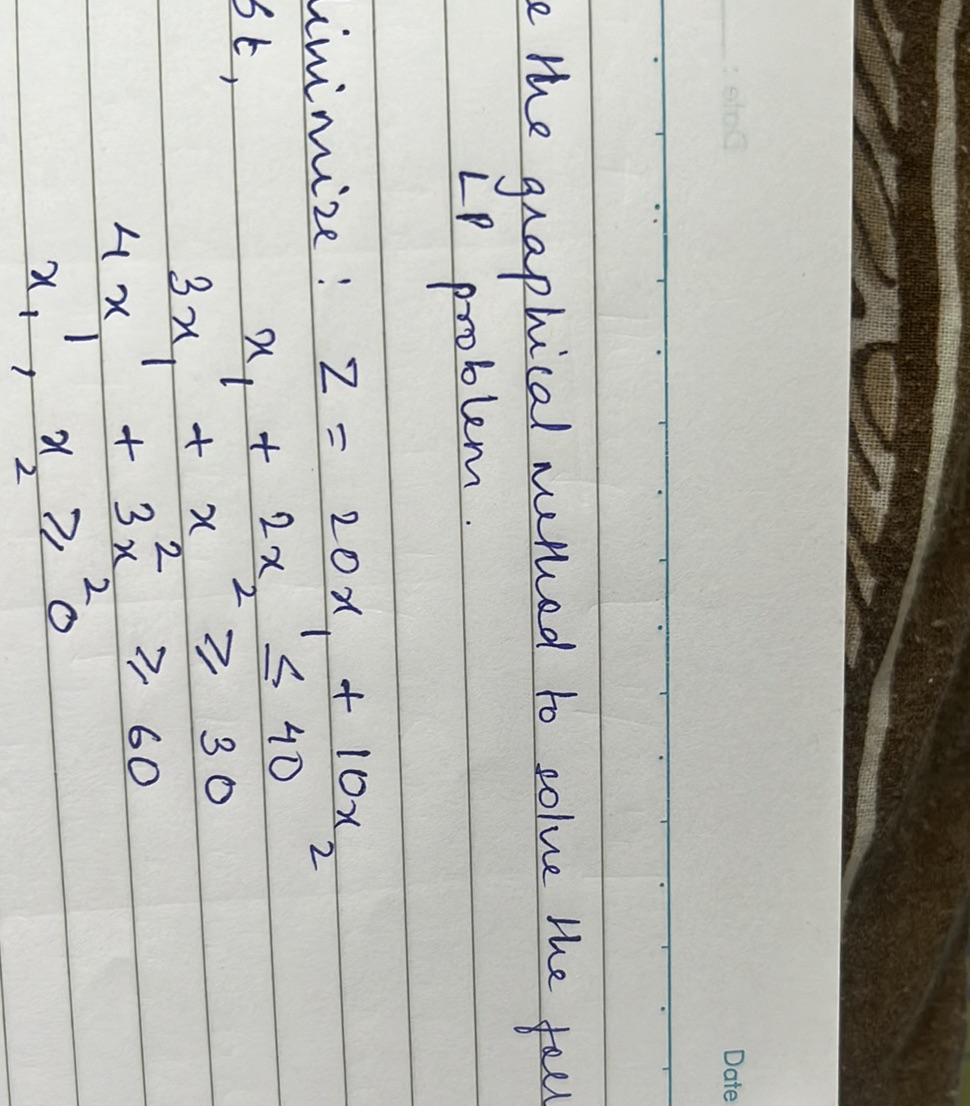 Date
e the graphical method to solve the foll
LP problem.
inimize : Z = 20x₁ + 10x₂
st, x₁ + 2x₂ ≤ 40
3x₁ + x₂ ≥ 30
4x₁ + 3x₂ ≥ 60
x₁, x₂ ≥ 0